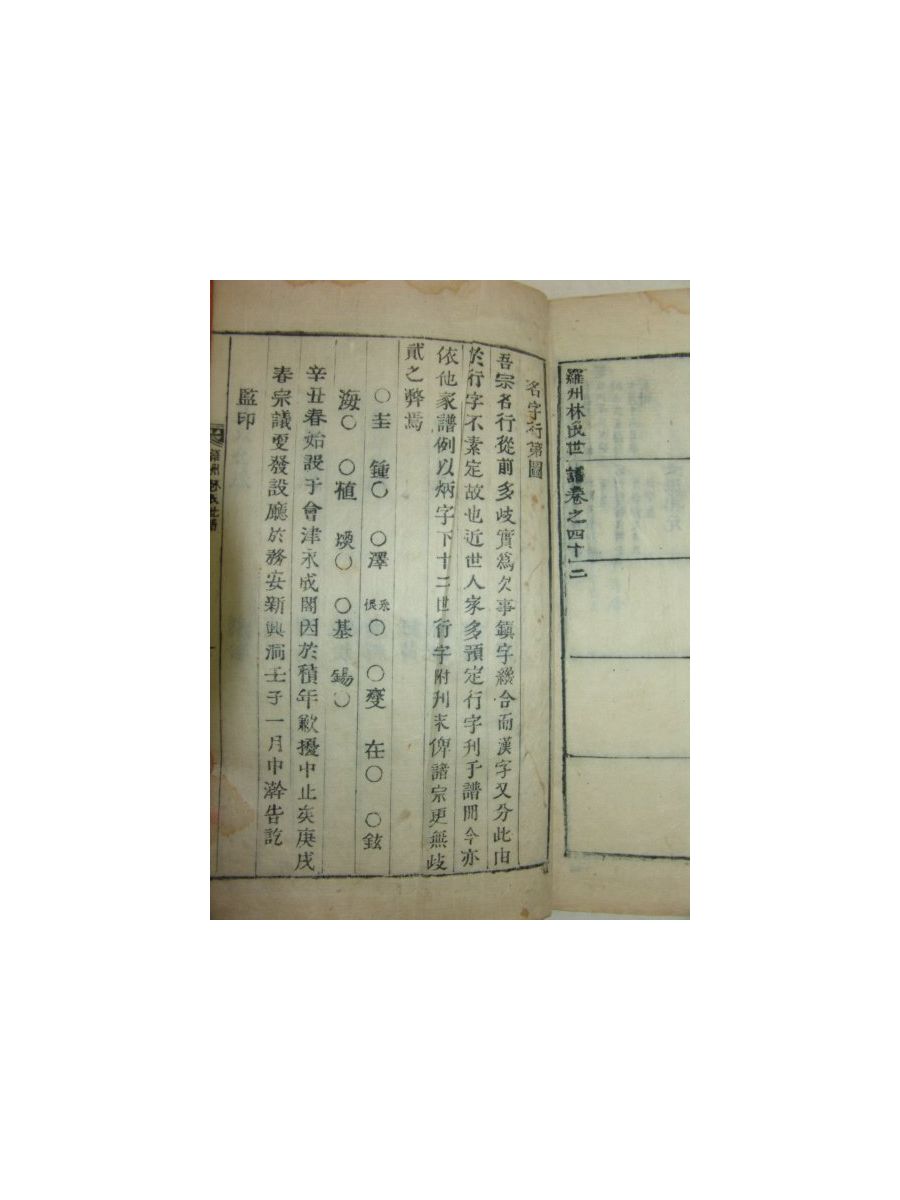 羅州林氏世譜卷之四十二
名字行第圖
吾宗名行從前多歧實爲欠事鎭字纔合而漢字又分此由
於行字不素定故也近世人家多預定行字刊于譜間今亦
依他家譜例以炳字下十二世行字附刊末俾諸宗更無歧
貳之弊焉
○圭 鍾○ ○澤 ○ ○變 在○ ○鉉
海○ ○植 煥○ ○基 錫○
辛丑春始設于會津永成閣因於積年歉擾中止矣庚戌
春宗議更發設廳於務安新興洞壬子一月中澣告訖
監印
羅州林氏世譜